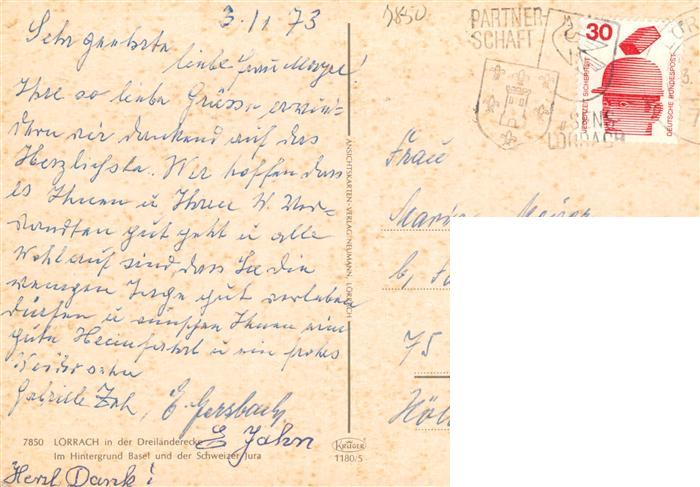 3.11 73
Sehr geehrte
liebe Frau
Ihre so lieben Grüsse erwi-
dern wir dankend auf das
Herzlichste. Wir hoffen dass
es Ihnen u Ihren W. Ver-
wandten gut geht u alle
Wohlauf sind, dass Sie die
wenigen Tage gut verleben
dürfen u wünschen Ihnen eine
gute Heimfahrt u ein frohes
Gabriele E. Gersbach
E Jahn
Herzl Dank!
7850 LÖRRACH in der Dreiländerecke
Im Hintergrund Basel und der Schweizer Jura
ANSICHTSKARTEN-VERLAG NEUMANN, LÖRRACH
KRÜGER
1180/5
7850
PARTNER-
SCHAFT
SENS
LÖRRACH
30
JEDERZEIT SICHERHEIT
DEUTSCHE BUNDESPOST
Frau
75